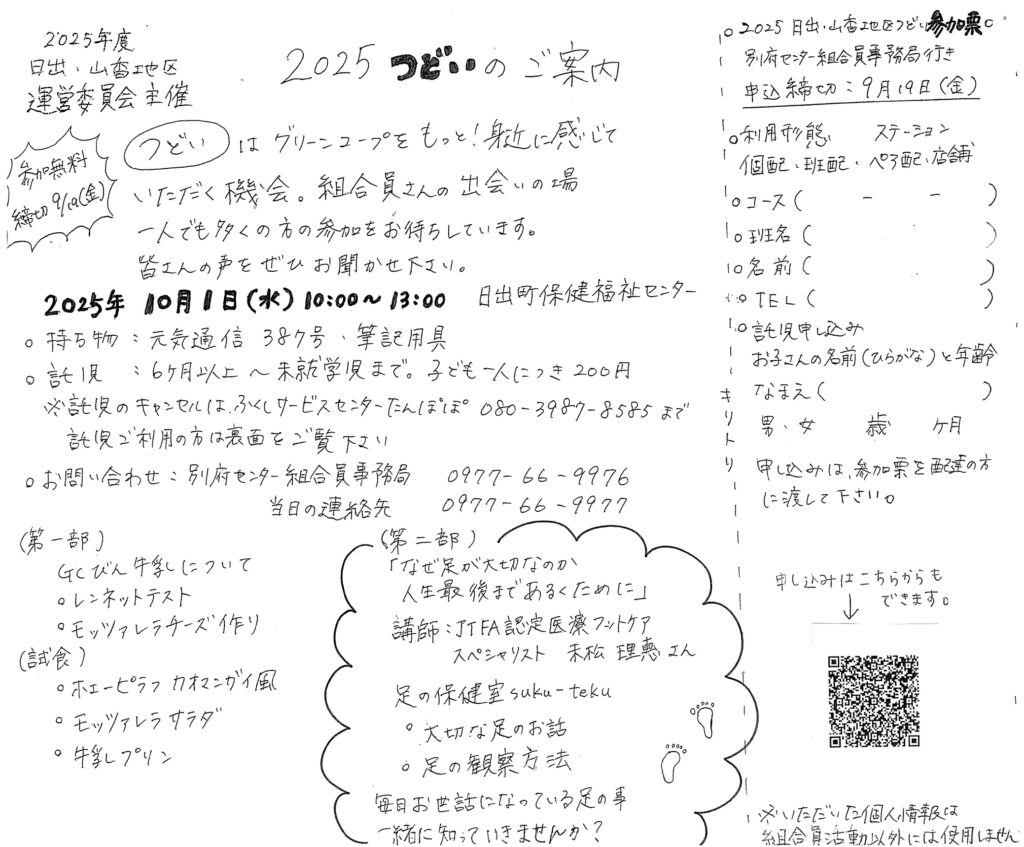 2025年度
日出・山香地区
運営委員会主催
2025 つどいのご案内
参加無料
締切 9/19(金)
つどい はグリーンコープをもっと!身近に感じて
いただく機会。組合員さんの出会いの場
一人でも多くの方の参加をお待ちしています。
皆さんの声をぜひお聞かせ下さい。
2025年 10月1日(水) 10:00~13:00 日出町保健福祉センター
○持ち物:元気通信 387号・筆記用具
○託児 :6ヶ月以上~未就学児まで。子ども一人につき200円
※託児のキャンセルは、ふくしサービスセンターたんぽぽ 080-3987-8585まで
託児ご利用の方は裏面をご覧下さい
○お問い合わせ:別府センター組合員事務局 0977-66-9976
当日の連絡先 0977-66-9977
(第一部)
GCびん牛乳について
○レンネットテスト
○モッツァレラチーズ作り
(試食)
○ホエーピラフ カオマンガイ風
○モッツァレラサラダ
○牛乳プリン
(第二部)
「なぜ足が大切なのか
人生最後まであるくために」
講師:JTFA認定医療フットケア
スペシャリスト 末松 理恵さん
足の保健室suku-teku
○大切な足のお話
○足の観察方法
毎日お世話になっている足の事
一緒に知っていきませんか?
○2025日出・山香地区つどい参加票○
別府センター組合員事務局行き
申込締切:9月19日(金)
○利用形態 ステーション
個配、班配、ペア配、店舗
○コース( - - )
○班名( )
○名前( )
○TEL( )
○託児申し込み
お子さんの名前(ひらがな)と年齢
なまえ( )
男・女 歳 ヶ月
キリトリ
申し込みは、参加票を配達の方
に渡して下さい。
申し込みはこちらからも
できます。
※いただいた個人情報は
組合員活動以外には使用しません